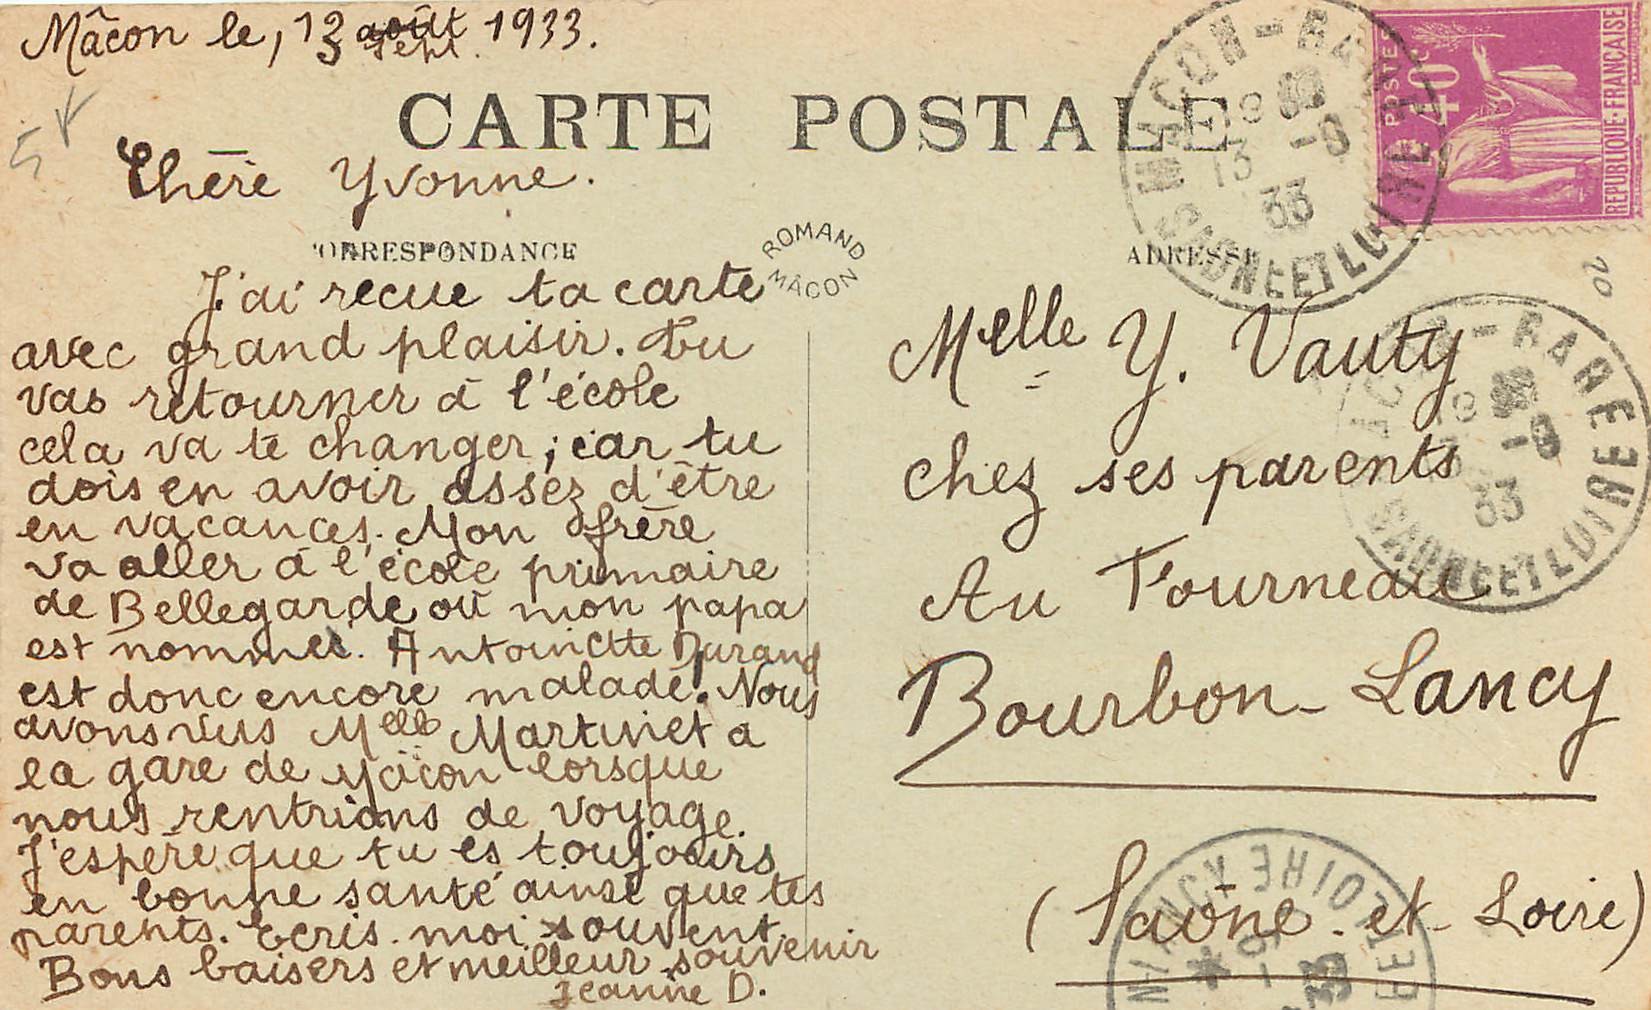 Mâcon le, 13 août sept. 1933.
CARTE POSTALE
Chère Yvonne.
CORRESPONDANCE
ROMAND
MÂCON
ADRESSE
J'ai recue ta carte
avec grand plaisir. Tu
vas retourner à l'école
cela va te changer, car tu
dois en avoir assez d'être
en vacances. Mon frère
va aller à l'école primaire
de Bellegarde où mon papa
est nommé. Antoinette Durand
est donc encore malade. Nous
avons vus Melle Martinet a
la gare de Mâcon lorsque
nous rentrions de voyage.
J'espère que tu es toujours
en bonne santé ainsi que tes
parents. Ecris moi souvent.
Bons baisers et meilleur souvenir
Jeanne D.
Melle Y. Vauty
chez ses parents
Au Fourneau
Bourbon-Lancy
(Saône-et-Loire)
POSTES
40c
REPUBLIQUE·FRANÇAISE
MACON-BARRE
13 -9
33
SAONE ET LOIRE
MACON-BARRE
-9
33
SAONE ET LOIRE
ET LOIRE
33